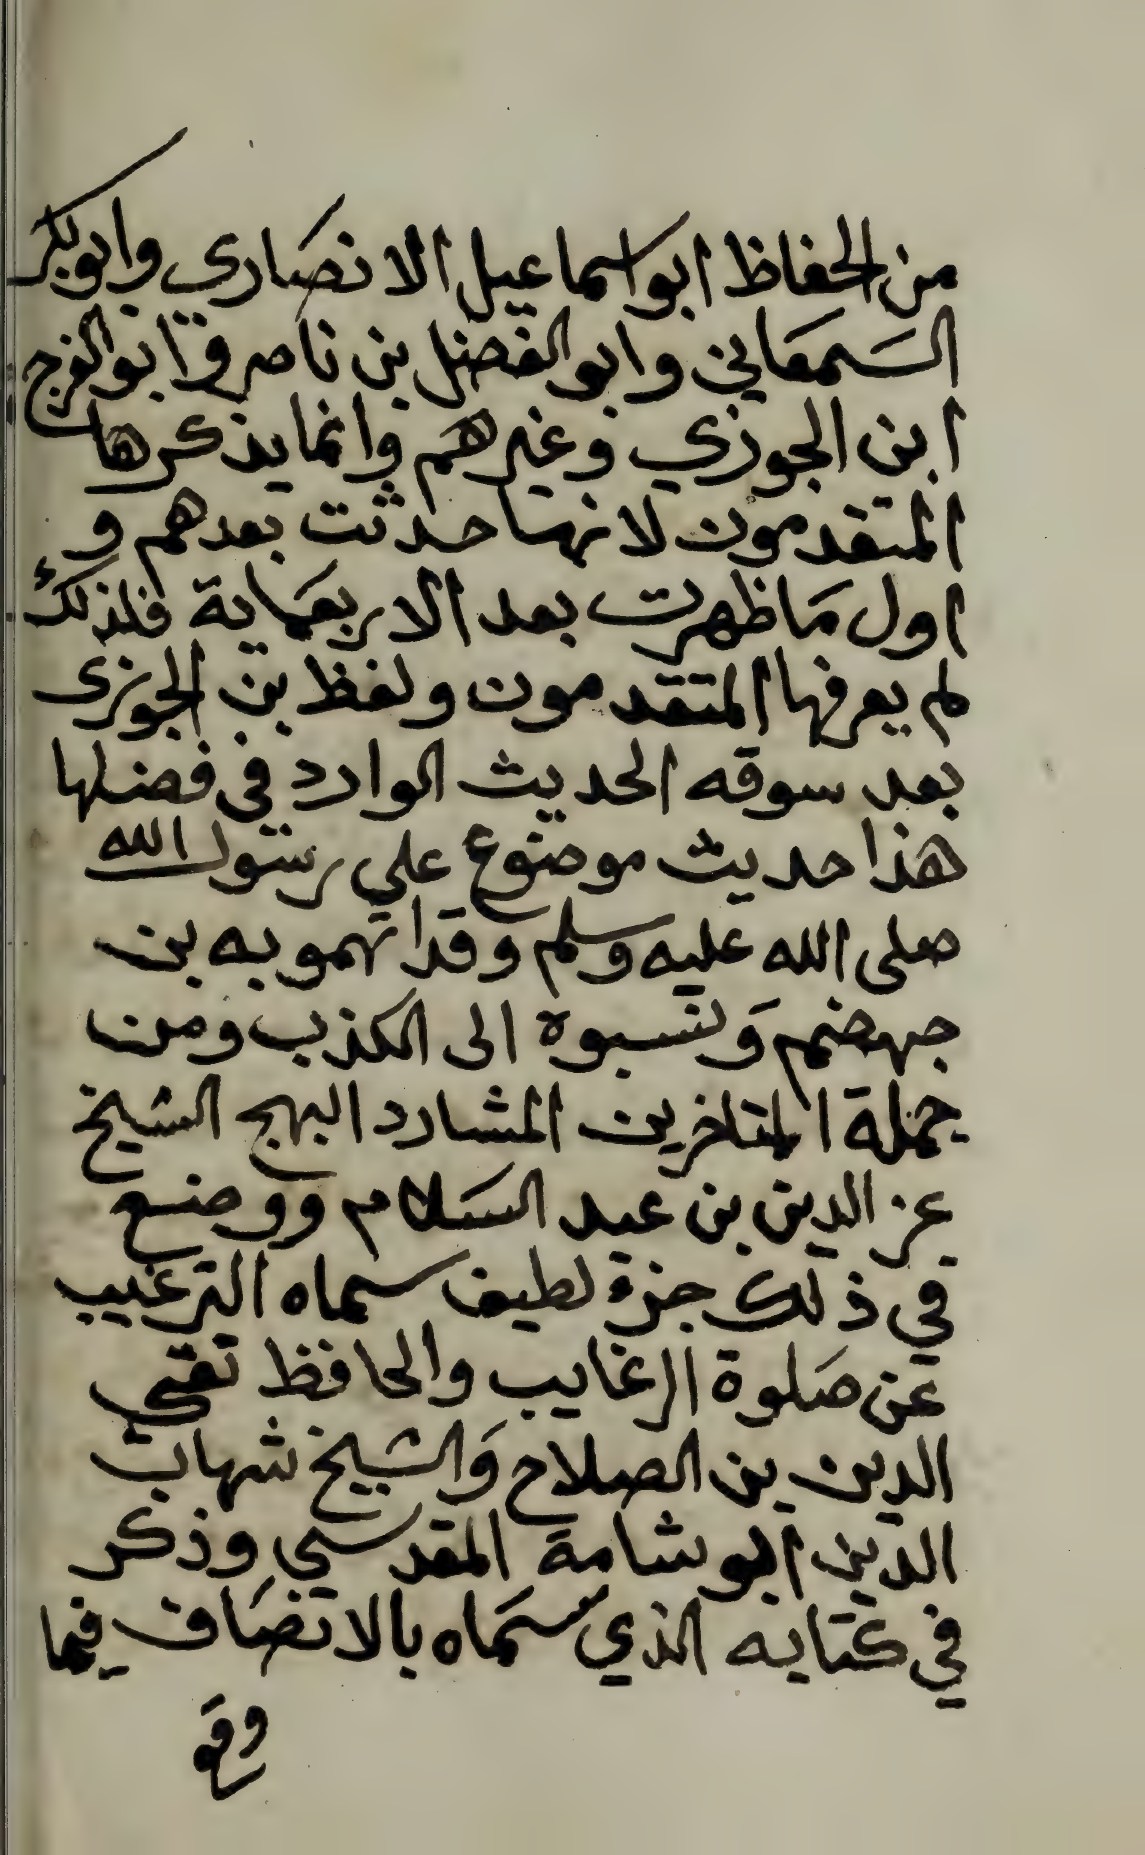 من الحفاظ ابو اسماعيل الانصاري وابو بكر
السمعاني وابو الفضل بن ناصر وابو الفرج
ابن الجوزي وغيرهم وانما يذكرها
المتقدمون لانها حدثت بعدهم و
اول ما ظهرت بعد الاربعماية فلذلك
لم يعرفها المتقدمون ولفظ بن الجوزى
بعد سوقه الحديث الوارد في فضلها
هذا حديث موضوع علي رسول الله
صلى الله عليه وسلم وقد اتهمو به بن
جهضم ونسبوه الى الكذب ومن
جملة المتاخرين المشارد اليهم الشيخ
عز الدين بن عبد السلام ووضع
في ذلك جزء لطيف سماه الترغيب
عن صلوة الرغايب والحافظ تقي
الدين بن الصلاح والشيخ شهاب
الدين ابو شامة المقدسي وذكر
في كتابه الذي سماه بالانصاف فيما
وقو